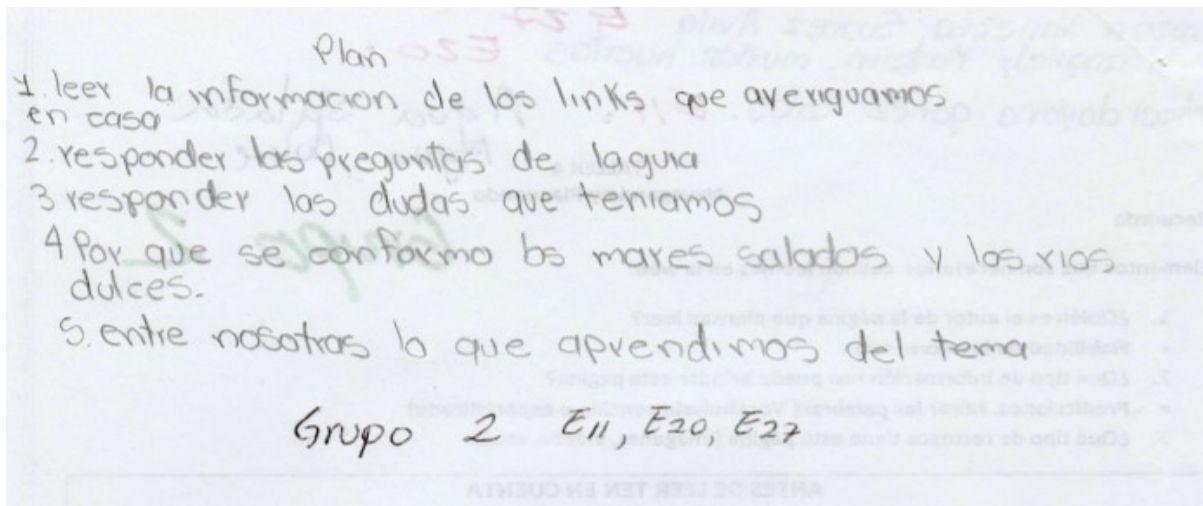 Plan
1. leer la informacion de los links que averiguamos
en casa
2. responder las preguntas de la guia
3 responder las dudas que teniamos
4 Por que se conformo los mares salados y los rios
dulces.
5. entre nosotras lo que aprendimos del tema
Grupo 2 E11, E20, E27